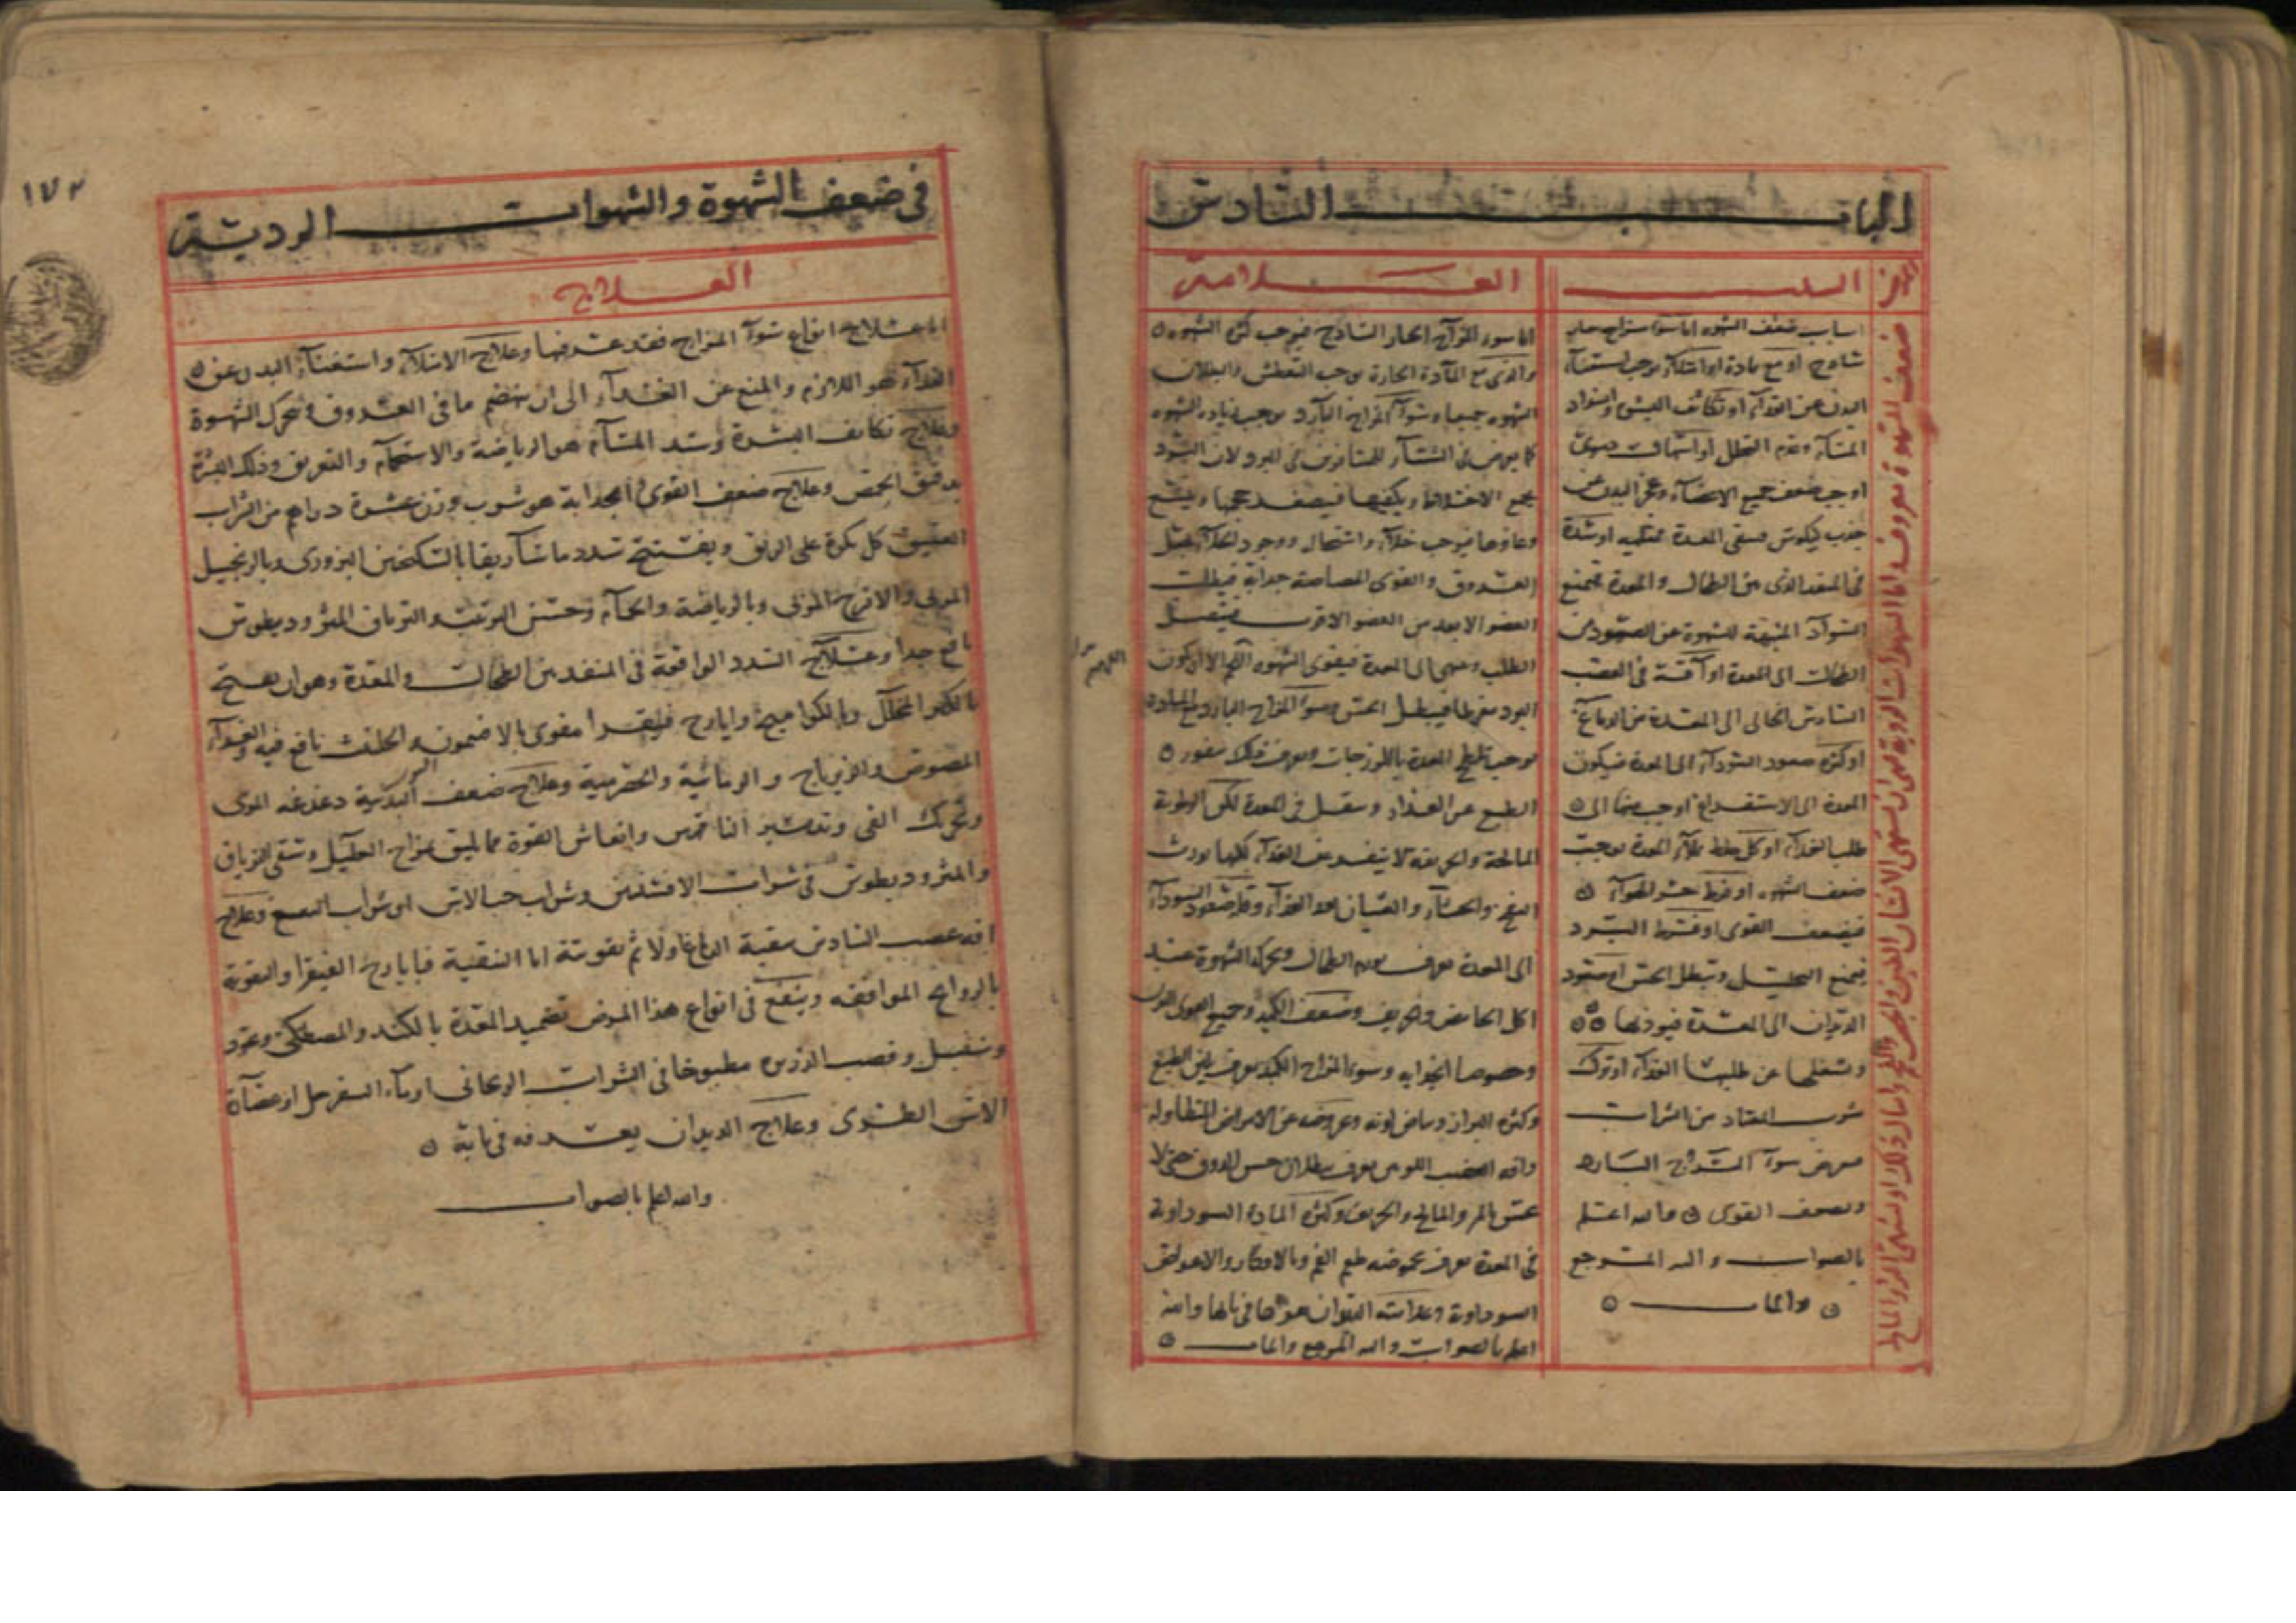 الباب السادس
المرض
السبب
العلامة
ضعف الشهوة معروف واما الشهوات الردية فهي ان يشتهي الانسان الطين والجص والفحم وامثال ذلك او يشتهي الحريف والمالح
اسباب ضعف الشهوه اما سوء مزاج حار
ساذج او مع مادة او امتلاء يوجب استغناء
البدن عن الغذاء او تكاثف البشرة وانسداد
المسام وعدم التحلل او اسهال
او حب ضعف جميع الاعضاء وعجز البدن عن
جذب الكيلوس فتبقى المعدة ممتليه او سدة
في المنفذ الذي بين الطحال والمعدة فتمنع
السوداء المنبهة للشهوة عن الصعود من
الطحال الى المعدة او آفة في العصب
السادس الجائي الى المعدة من الدماغ
او كثرة صعود السوداء الى المعدة فيكون
المعدة الى الاستفراغ اوجب منها الى
طلب الغذاء او كل خلط يملأ المعدة يوجب
ضعف الشهوه او فرط حر الهواء
فيضعف القوى او فرط البرد
فيمنع التحليل ويبطل الحس او صعود
الديدان الى المعدة فيوذيها
وشغلها عن طلب الغذاء او ترك
شرب المعتاد من الشراب
سوء المزاج البارد
ويضعف القوى والله اعلم
بالصواب واليه المرجع
والماب
اما سوء المزاج الحار الساذج فيوجب كثرة الشهوه
والذي مع المادة الحارة يوجب التعطش والبطلان
الشهوه جميعا وسوء المزاج البارد يوجب زياده الشهوه
كما يعرض في الشتاء للمسافرين في البرد لان البرد
يجمع الاخلاط ويكثفها فيصغر حجمها ويتسع
وعاؤها فيوجب خلاء واشتعال ووجود الخلاء مثل
العروق والقوى المصاصة جذابة فيطلب
العضو الابعد من العضو الاقرب فيتصل
الطلب وينتهي الى المعدة فيقوى الشهوه اللهم الا ان يكون
البرد مفرطا فيبطل الحس وسوء المزاج البارد مع المادة
يوجب تلطخ المعدة باللزوجات ويعرف ذلك بنفور
الطبع عن الغذاء وثقل في المعدة لكن الرطوبة
المالحة والحريفة لا ينفر عن الغذاء كلها يورث
النفخ والجشاء والغثيان بعد الغذاء وقلة صعود السوداء
الى المعدة يعرف بورم الطحال وتحرك الشهوة عند
اكل الحامض والحريف وضعف الكبد وجميع القوى
وخصوصا الجاذبه وسوء المزاج الكبد يعرف بلين الطبع
وكثره البراز وبياض لونه وعروضه عن الامراض المتطاوله
وافه العصب يعرف ببطلان حس الذوق حتى لا
يحس بالمر والمالح والحريف وكثره المادة السوداوية
في المعدة يعرف بحموضه طعم الفم وبالافكار والاعراض
السوداوية وعلامات الديدان نذكرها في بابها والله
اعلم بالصواب واليه المرجع والماب
اللهم
١٧٢
في ضعف الشهوة والشهوات الردية
العلاج
اما علاج انواع سوء المزاج فقد عرفتها وعلاج الامتلاء واستغناء البدن عن
الغذاء هو اللازم والمنع عن الغذاء الى ان ينهضم ما في العروق وتحرك الشهوة
وعلاج تكاثف البشرة وسد المسام هو الرياضة والاستحمام والتعريق وذلك البشرة
بدقيق الحمص وعلاج ضعف القوى الجذابة هو شرب وزن عشرة دراهم من الشراب
العتيق كل بكرة على الريق ويفتح سدد ماساريقا بالسكنجبين البزوري وبالزنجبيل
المربى والاترج المربى وبالرياضة والحمام وحسن الترتيب والترياق المثروديطوس
نافع جدا وعلاج السدد الواقعة في المنفذ بين الطحال والمعدة وهو ان يفتح
بالكبر المخلل وبالكواميخ وايارج فيقرا مقوى بالافتيمون والحلتيت نافع فيه والغذاء
المصوص والزيرباج والرمانية والحصرمية وعلاج ضعف البدنية دغدغة المرى
وتحرك القي وتدبير الناقهين وانعاش القوة مما يليق بمزاج العليل وتسقى الترياق
والمثروديطوس في شراب الافسنتين وشراب حب الاس او شراب النعنع وعلاج
افة عصب السادس بتنقية الدماغ اولا ثم تقويته اما التنقية فبايارج الفيقرا والتقوية
بالروائح الموافقه وينفع في انواع هذا المرض تضميد المعدة بالكندر والمصطكي وعود
وسنبل وقصب الذريره مطبوخا في الشراب الريحاني او ماء السفرجل او عصارة
الاس الطري وعلاج الديدان يعرف في بابه
والله اعلم بالصواب